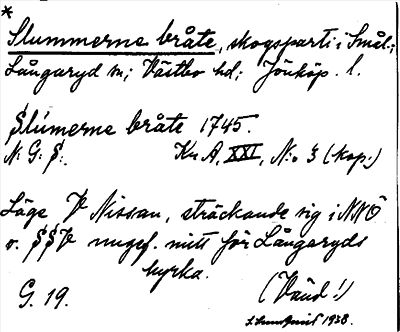 *
Slummerne bråte, skogsparti i Smål.;
Långaryd sn; Västbo hd; Jönköp. l.
Slúmerne bråte 1745.
N: G: S:. Kr. A, XXI, N:o 3 (kop.)
Läge V Nissan, sträckande sig i NNÖ
o. SSV ungef. mitt för Långaryds
kyrka.
G. 19. (Vänd!)
1938.